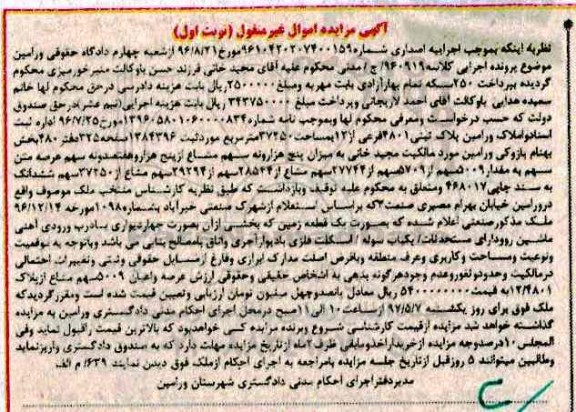 آگهی مزایده اموال غیرمنقول (نوبت اول)
نظربه اینکه بموجب اجراییه اصداری شماره ۹۶۱۰۴۲۰۲۰۷۴۰۰۱۵۹مورخ۹۶/۸/۲۱ ازشعبه چهارم دادگاه حقوقی ورامین
موضوع پرونده اجرایی کلاسه۹۶۰۹۱۹/ ج / مدنی محکوم علیه آقای مجید خانی فرزند حسن باوکالت منیرخورمیزی محکوم
گردیده بپرداخت ۲۵۰سکه تمام بهارآزادی بابت مهریه ومبلغ۲۵۰۰۰۰۰ریال بابت هزینه دادرسی درحق محکوم لها خانم
سمیده هدایی باوکالت آقای احمد لاریجانی وپرداخت مبلغ ۳۴۳۷۵۰۰۰۰ریال بابت هزینه اجرایی(نیم عشر)درحق صندوق
دولت که حسب درخواست ومعرفی محکوم لها وبموجب نامه شماره۱۳۹۶۵۸۰۱۰۶۰۰۰۰۸۳۴مورخ۹۶/۷/۲۵ اداره ثبت
اسنادواملاک ورامین پلاک ثبتی۴۸۰۱فرعی از۱۲بمساحت۳۷۲۵۰مترمربع موردثبت ۱۳۸۴۳۹۶صفحه۳۲۵دفتر۴۸۰بخش
بهنام پازوکی ورامین مورد مالکیت مجید خانی به میزان پنج هزارونه سهم مشاع ازپنج هزاروهفتصدونه سهم عرصه متن
سهم به مقدار۵۰۰۹سهم از۵۷۰۹سهم از۲۷۷۴۴سهم مشاع از۲۸۵۴۴سهم از۲۹۲۹۴سهم مشاع از۳۷۲۵۰ سهم ششدانگ
به سند چاپی۴۶۸۰۱۷ ومتعلق به محکوم علیه توقیف وبازداشت که طبق نظریه کارشناس منتخب ملک موصوف واقع
درورامین خیابان بهرام مصیری صنعت۳که براساس استعلام ازشهرک صنعتی خیرآباد بشماره۱۰۹۸مورخه ۹۶/۱۲/۱۴
ملک مذکورصنعتی اعلام شده که بصورت یک قطعه زمین که بخشی ازآن بصورت چهاردیواری بادرب ورودی آهنی
ماشین رودارای مستحدثات/ یکباب سوله / اسکلت فلزی بادیوارآجری واتاق بامصالح بنایی می باشد وباتوجه به موقعیت
ونوعیت ومساحت وکاربری وعرف منطقه وبافرض اصلت مدارک ابرازی وفارغ ازمسایل حقوقی وثبتی وتغییرات احتمالی
درمالکیت وحدودوثغوروعدم وجودهرگونه بدهی به اشخاص حقیقی وحقوقی ارزش عرصه واعیان ۵۰۰۹سهم مشاع ازپلاک
۱۲/۴۸۰۱به قیمت۵۴۰۰۰۰۰۰۰۰ریال معادل پانصدوچهل میلیون تومان ارزیابی وتعیین قیمت شده است ومقررگردیدکه
ملک فوق برای روز یکشنبه ۹۷/۵/۷ ازساعت ۱۰ الی۱۱صبح درمحل اجرای احکام مدنی دادگستری ورامین به مزایده
گذاشته خواهد شد مزایده ازقیمت کارشناسی شروع وبرنده مزایده کسی خواهدبود که بالاترین قیمت راقبول نماید وفی
المجلس ۱۰درصدوجه مزایده ازخریداراخذومابقی ظرف ۱ماه ازتاریخ مزایده مهلت دارد که به صندوق دادگستری واریزنماید
وطالبین میتوانند ۵ روزقبل ازتاریخ جلسه مزایده بامراجعه به اجرای احکام ازملک فوق دیدن نمایند ۶۳۹/ م الف
مدیردفتراجرای احکام مدنی دادگستری شهرستان ورامین